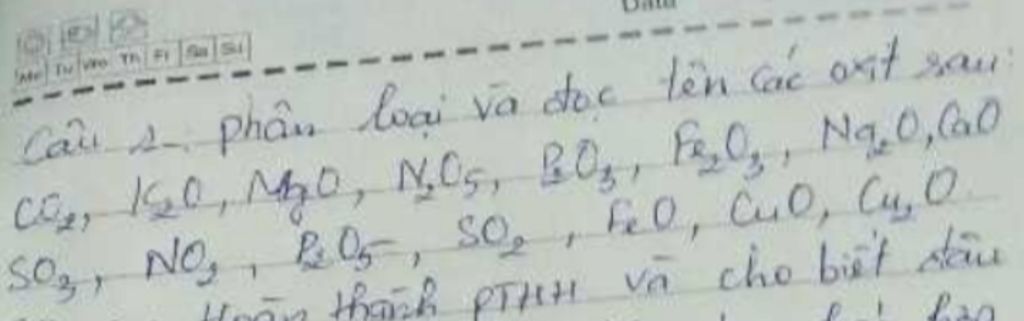 Data
Mo Tu We Th Fr Sa Su
Câu 1. phân loại và đọc tên các oxit sau:
CO₂, K₂O, MgO, N₂O₅, P₂O₃, Fe₂O₃, Na₂O, CaO
SO₃, NO₂, P₂O₅, SO₂, FeO, CuO, Cu₂O
Hoàn thành PTHH và cho biết đâu